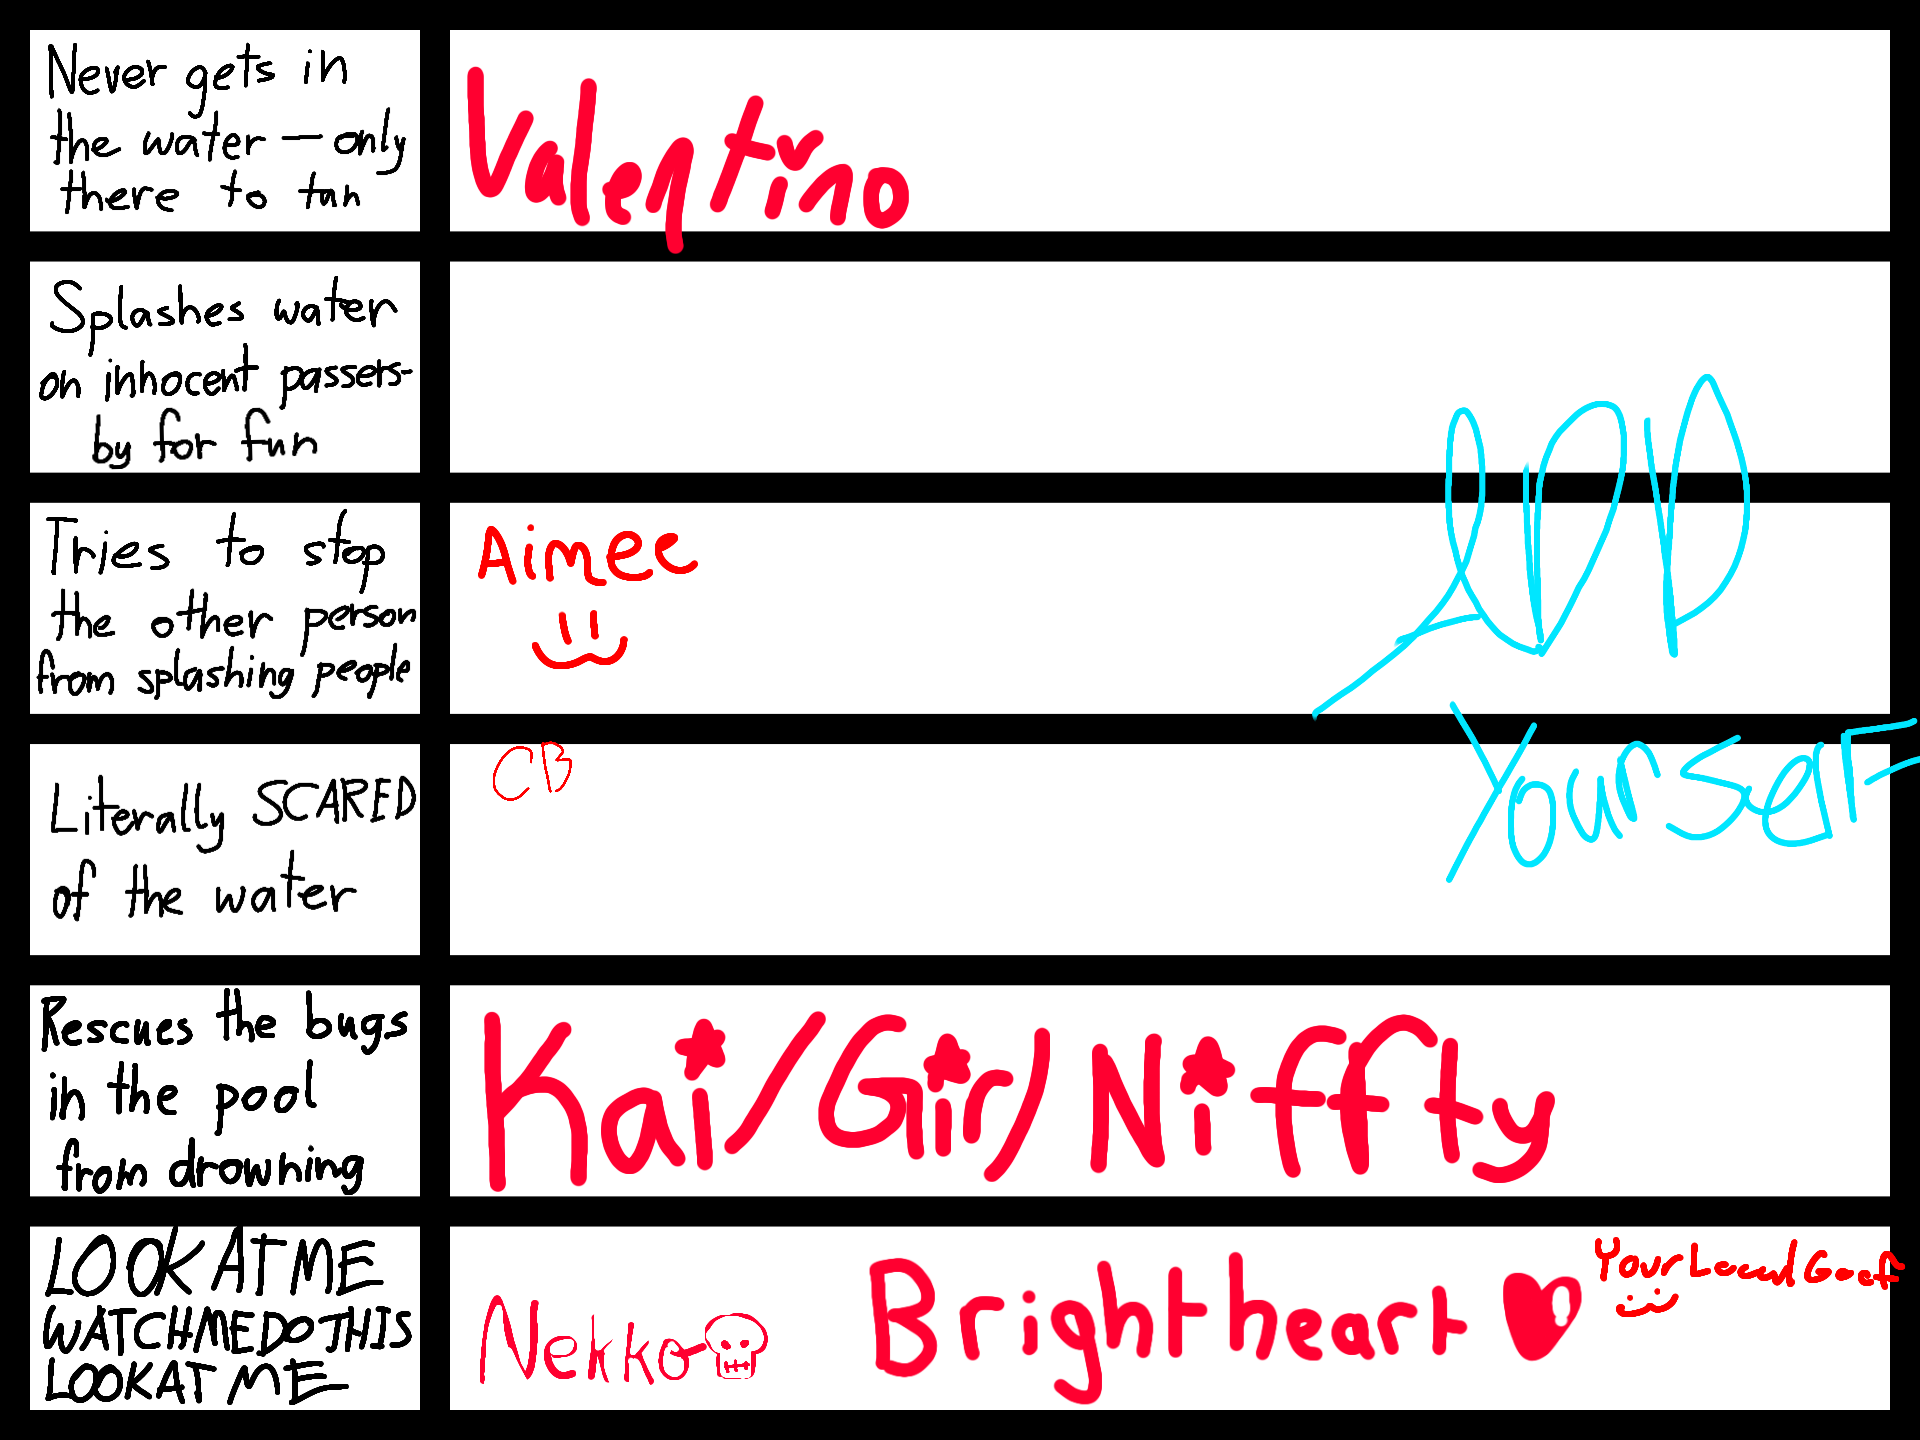 Never gets in
the water — only
there to tan
Valentino
Splashes water
on innocent passers-
by for fun
Tries to stop
the other person
from splashing people
Aimee
ADD
Yourself
Literally SCARED
of the water
CB
Rescues the bugs
in the pool
from drowning
Kai/Gir/Niffty
LOOK AT ME
WATCHMEDOTHIS
LOOKAT ME
Nekko
Brightheart
YourLocalGoof